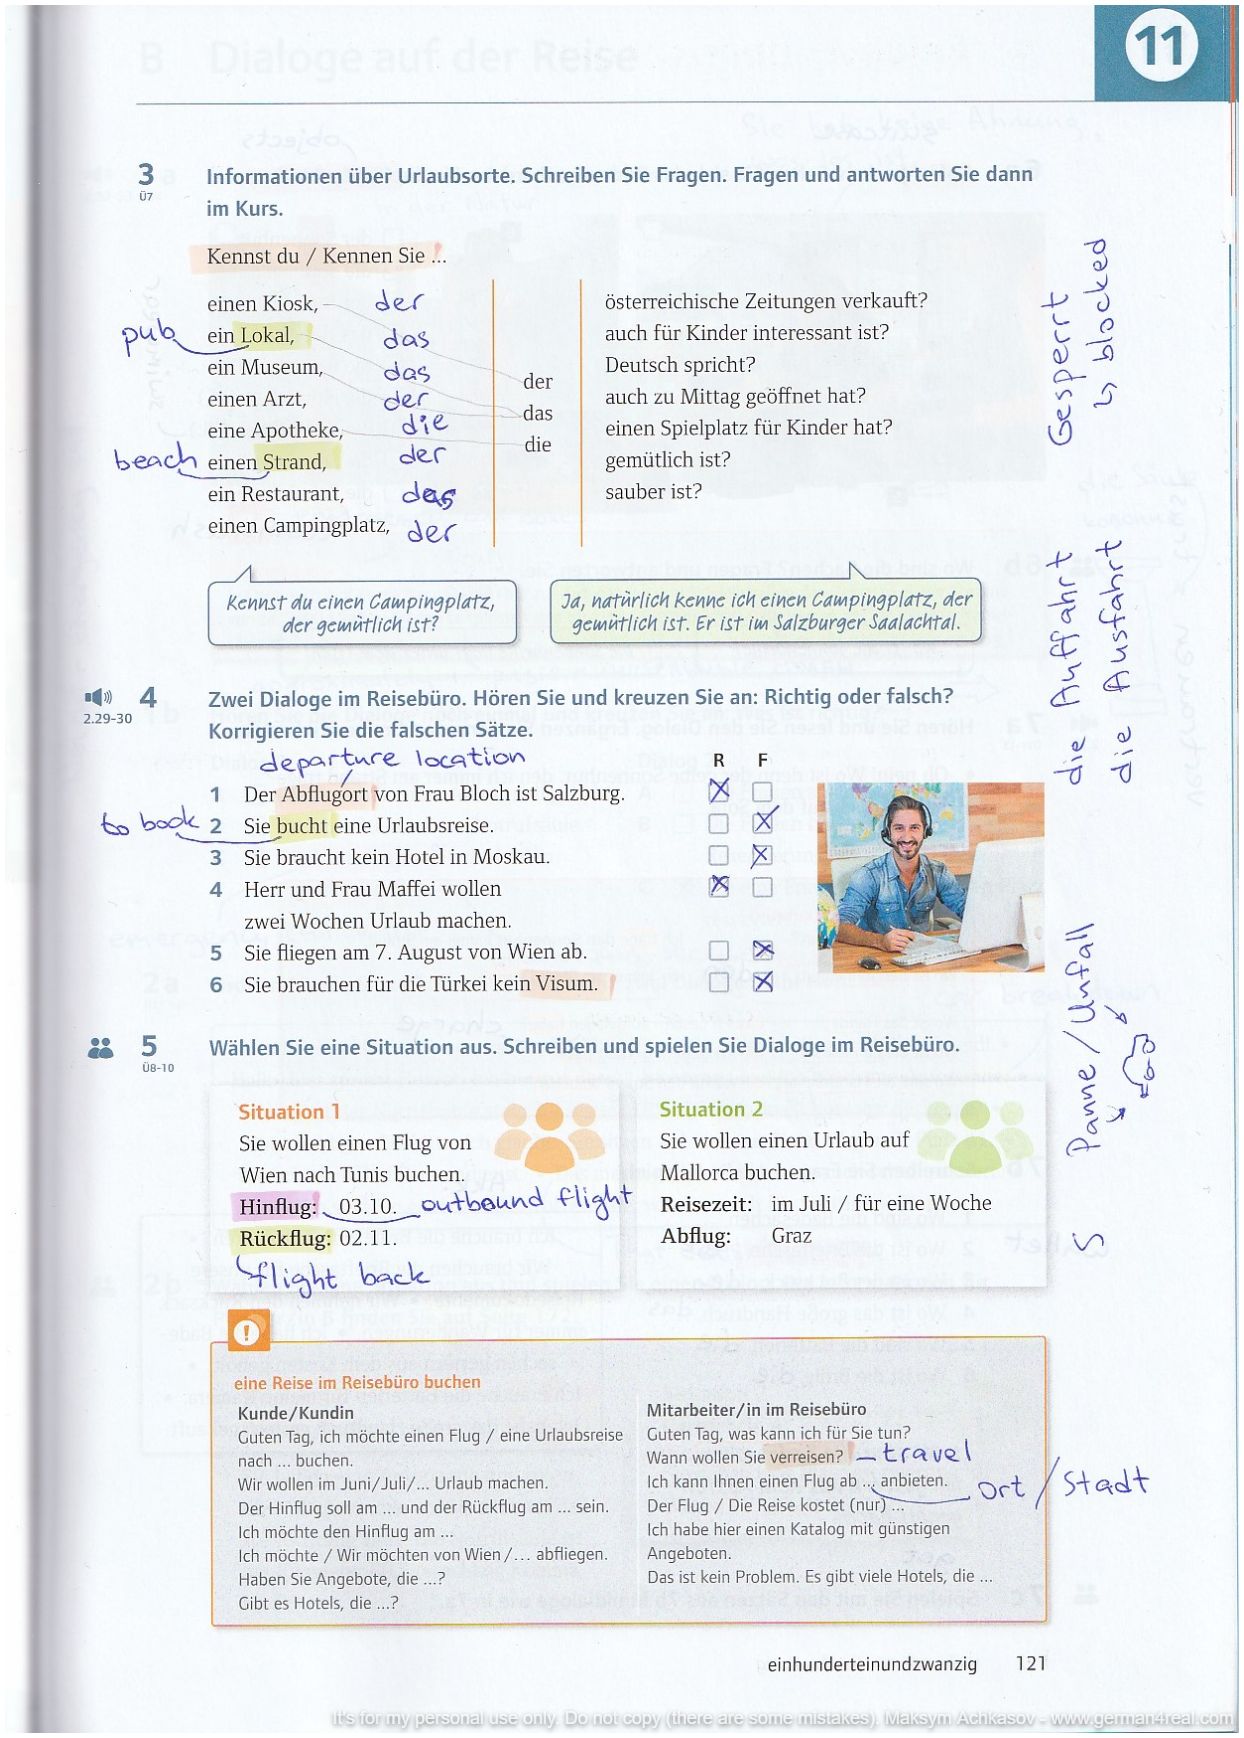 11
3
Ü7
Informationen über Urlaubsorte. Schreiben Sie Fragen. Fragen und antworten Sie dann
im Kurs.
Kennst du / Kennen Sie ...
einen Kiosk, der
pub ein Lokal, das
ein Museum, das
einen Arzt, der
eine Apotheke, die
beach einen Strand, der
ein Restaurant, das
einen Campingplatz, der
der
das
die
österreichische Zeitungen verkauft?
auch für Kinder interessant ist?
Deutsch spricht?
auch zu Mittag geöffnet hat?
einen Spielplatz für Kinder hat?
gemütlich ist?
sauber ist?
Gesperrt
↳ blocked
Kennst du einen Campingplatz,
der gemütlich ist?
Ja, natürlich kenne ich einen Campingplatz, der
gemütlich ist. Er ist im Salzburger Saalachtal.
die Auffahrt
die Ausfahrt
4
2.29-30
Zwei Dialoge im Reisebüro. Hören Sie und kreuzen Sie an: Richtig oder falsch?
Korrigieren Sie die falschen Sätze.
departure location
R F
1 Der Abflugort von Frau Bloch ist Salzburg.
to book 2 Sie bucht eine Urlaubsreise.
3 Sie braucht kein Hotel in Moskau.
4 Herr und Frau Maffei wollen
zwei Wochen Urlaub machen.
5 Sie fliegen am 7. August von Wien ab.
6 Sie brauchen für die Türkei kein Visum.
Panne / Unfall
5
Ü8-10
Wählen Sie eine Situation aus. Schreiben und spielen Sie Dialoge im Reisebüro.
Situation 1
Sie wollen einen Flug von
Wien nach Tunis buchen.
Hinflug: 03.10. outbound flight
Rückflug: 02.11.
flight back
Situation 2
Sie wollen einen Urlaub auf
Mallorca buchen.
Reisezeit: im Juli / für eine Woche
Abflug: Graz
!
eine Reise im Reisebüro buchen
Kunde/Kundin
Guten Tag, ich möchte einen Flug / eine Urlaubsreise
nach ... buchen.
Wir wollen im Juni/Juli/... Urlaub machen.
Der Hinflug soll am ... und der Rückflug am ... sein.
Ich möchte den Hinflug am ...
Ich möchte / Wir möchten von Wien /... abfliegen.
Haben Sie Angebote, die ...?
Gibt es Hotels, die ...?
Mitarbeiter/in im Reisebüro
Guten Tag, was kann ich für Sie tun?
Wann wollen Sie verreisen? – travel
Ich kann Ihnen einen Flug ab ... anbieten. Ort / Stadt
Der Flug / Die Reise kostet (nur) ...
Ich habe hier einen Katalog mit günstigen
Angeboten.
Das ist kein Problem. Es gibt viele Hotels, die ...
einhunderteinundzwanzig 121
It's for my personal use only. Do not copy (there are some mistakes). Maksym Achkasov - www.german4real.com